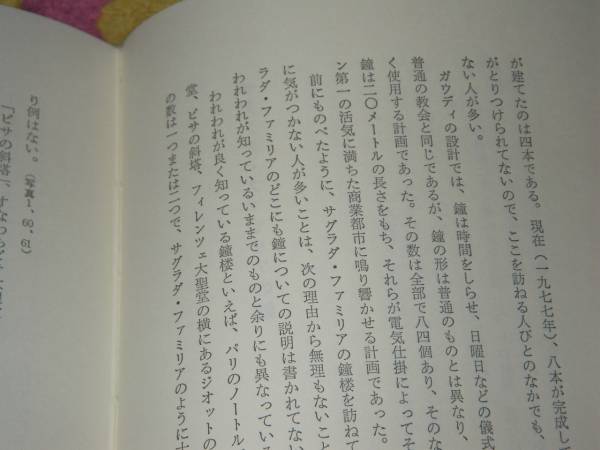 が建てたのは四本である。現在(一九七七年)、八本が完成し
がとりつけられてないので、ここを訪ねる人びとのなかでも、
ない人が多い。
ガウディの設計では、鐘は時間をしらせ、日曜日などの儀式
普通の教会と同じであるが、鐘の形は普通のものとは異なり、
く使用する計画であった。その数は全部で八四個あり、そのな
鐘は二〇メートルの長さをもち、それらが電気仕掛によってそ
ン第一の活気に満ちた商業都市に鳴り響かせる計画であった。
前にものべたように、サグラダ・ファミリアの鐘楼を訪ねて
に気がつかない人が多いことは、次の理由から無理もないこと
ラダ・ファミリアのどこにも鐘についての説明は書かれてない
われわれが知っているいままでのものと余りにも異なっている
われわれが良く知っている鐘楼といえば、パリのノートル
堂、ピサの斜塔、フィレンツェ大聖堂の横にあるジオットの
の数は一つまたは二つで、サグラダ・ファミリアのように
り例はない。(写真1、60、61)
「ピサの斜塔」、すなわち